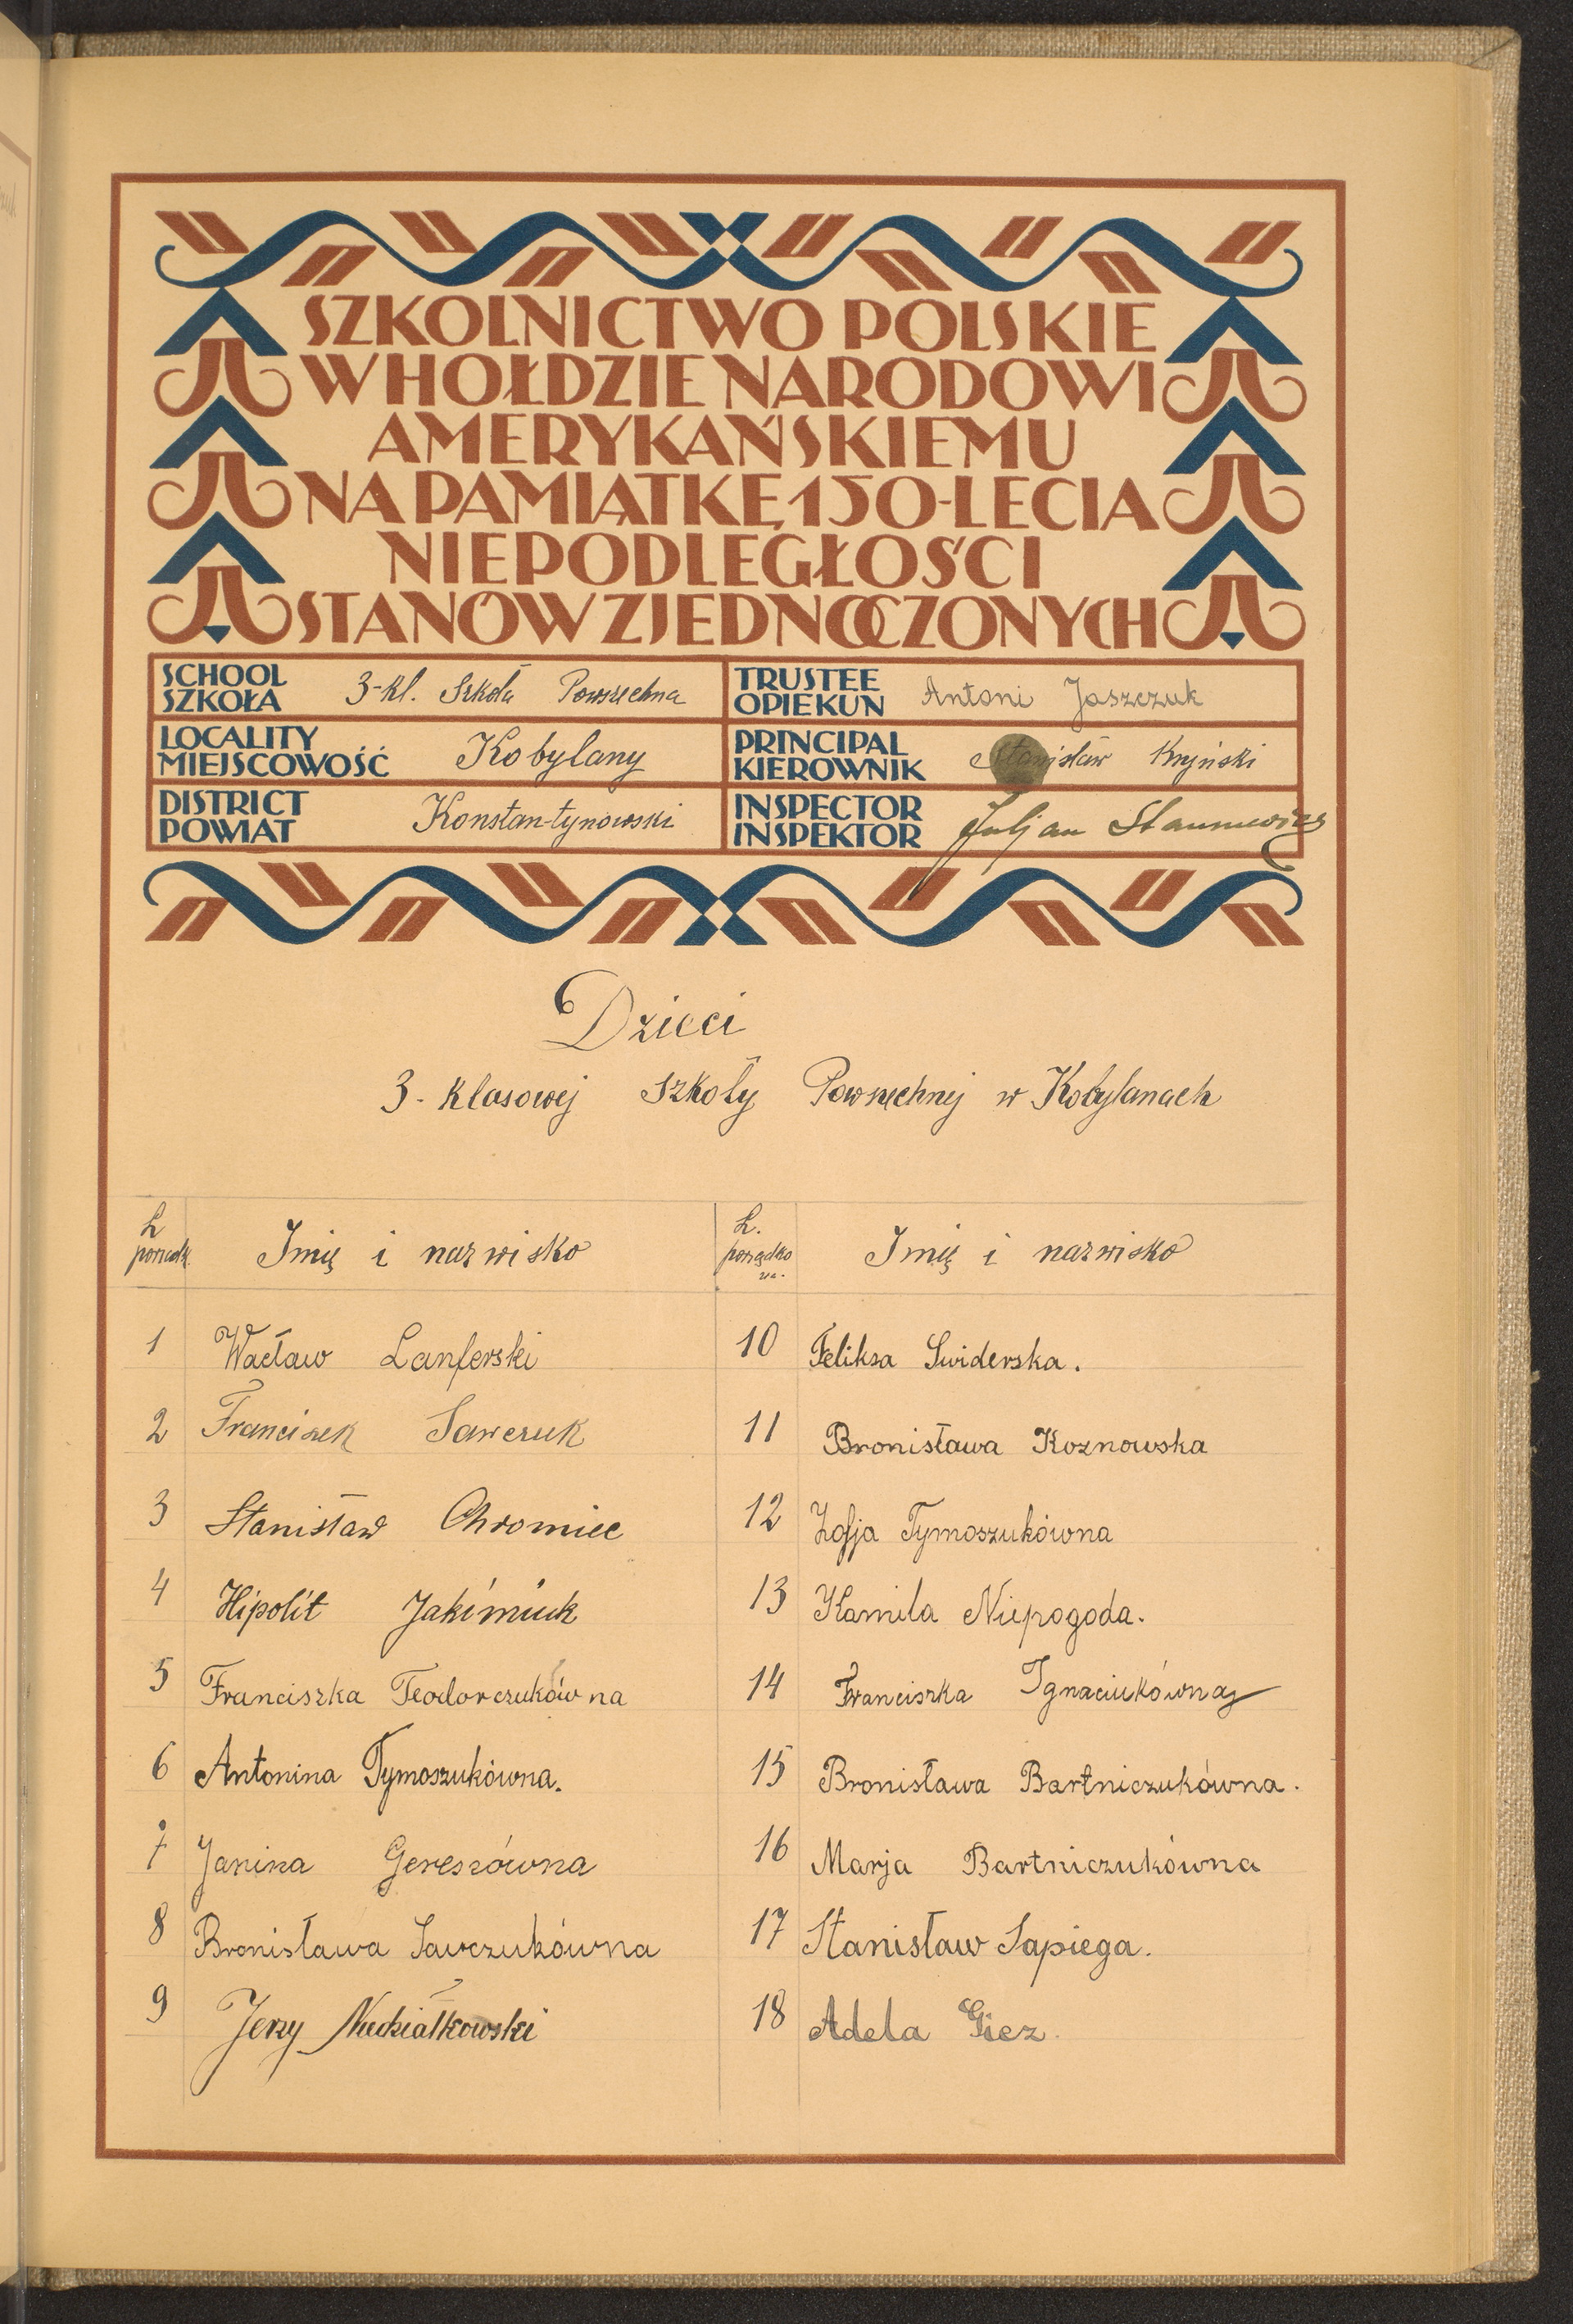 SZKOLNICTWO POLSKIE
W HOŁDZIE NARODOWI
AMERYKAŃSKIEMU
NA PAMIĄTKĘ 150-LECIA
NIEPODLEGŁOŚCI
STANÓW ZJEDNOCZONYCH
SCHOOL
SZKOŁA
3-kl. Szkoła Powszechna
TRUSTEE
OPIEKUN
Antoni Jaszczuk
LOCALITY
MIEJSCOWOŚĆ
Kobylany
PRINCIPAL
KIEROWNIK
Stanisław Kryński
DISTRICT
POWIAT
Konstan-tynowski
INSPECTOR
INSPEKTOR
Juljan
Dzieci
3-klasowej Szkoły Powszechnej w Kobylanach
L porządk. Imię i nazwisko
1 Wacław Lanferski
2 Franciszek Sawczuk
3 Stanisław Chromiec
4 Hipolit Jakimiuk
5 Franciszka Teodorczukówna
6 Antonina Tymoszukówna.
7 Janina Gereszówna
8 Bronisława Sawczukówna
9 Jerzy Niedziałkowski
L. porządko wa. Imię i nazwisko
10 Feliksa Swiderska.
11 Bronisława Koznowska
12 Zofja Tymoszukówna
13 Kamila Niepogoda.
14 Franciszka Ignaciukówna
15 Bronisława Bartniczukówna.
16 Marja Bartniczukówna
17 Stanisław Sapiega.
18 Adela Giez.